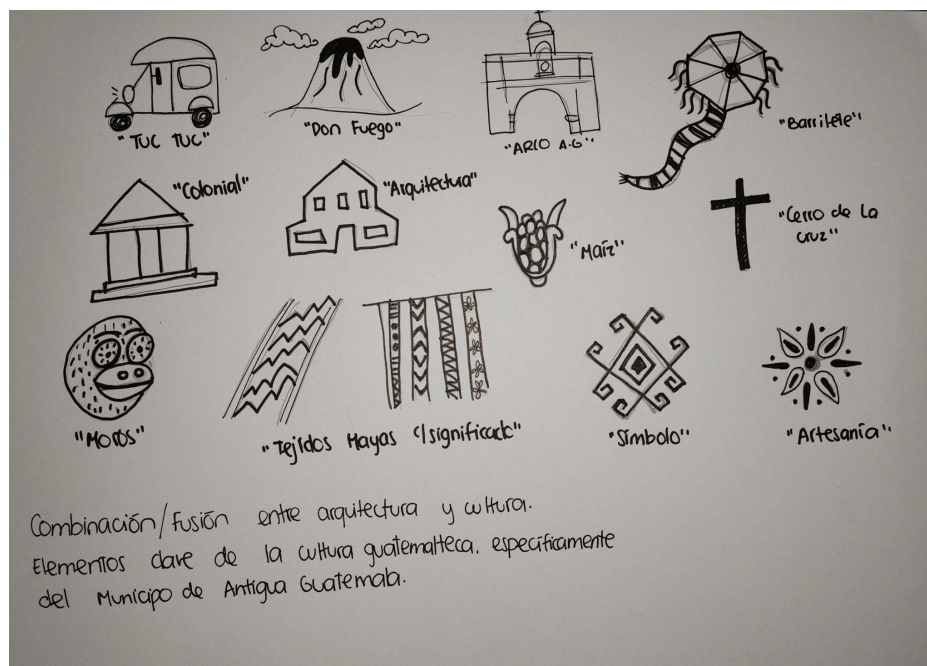 "TUC TUC"
"Don Fuego"
"ARCO A.G"
"Barrilete"
"Colonial"
"Arquitectura"
"Maíz"
"Cerro de La
cruz"
"Moros"
"Tejidos Mayas c/significado"
"Símbolo"
"Artesanía"
Combinación/Fusión entre arquitectura y cultura.
Elementos clave de la cultura guatemalteca, específicamente
del Municipo de Antigua Guatemala.